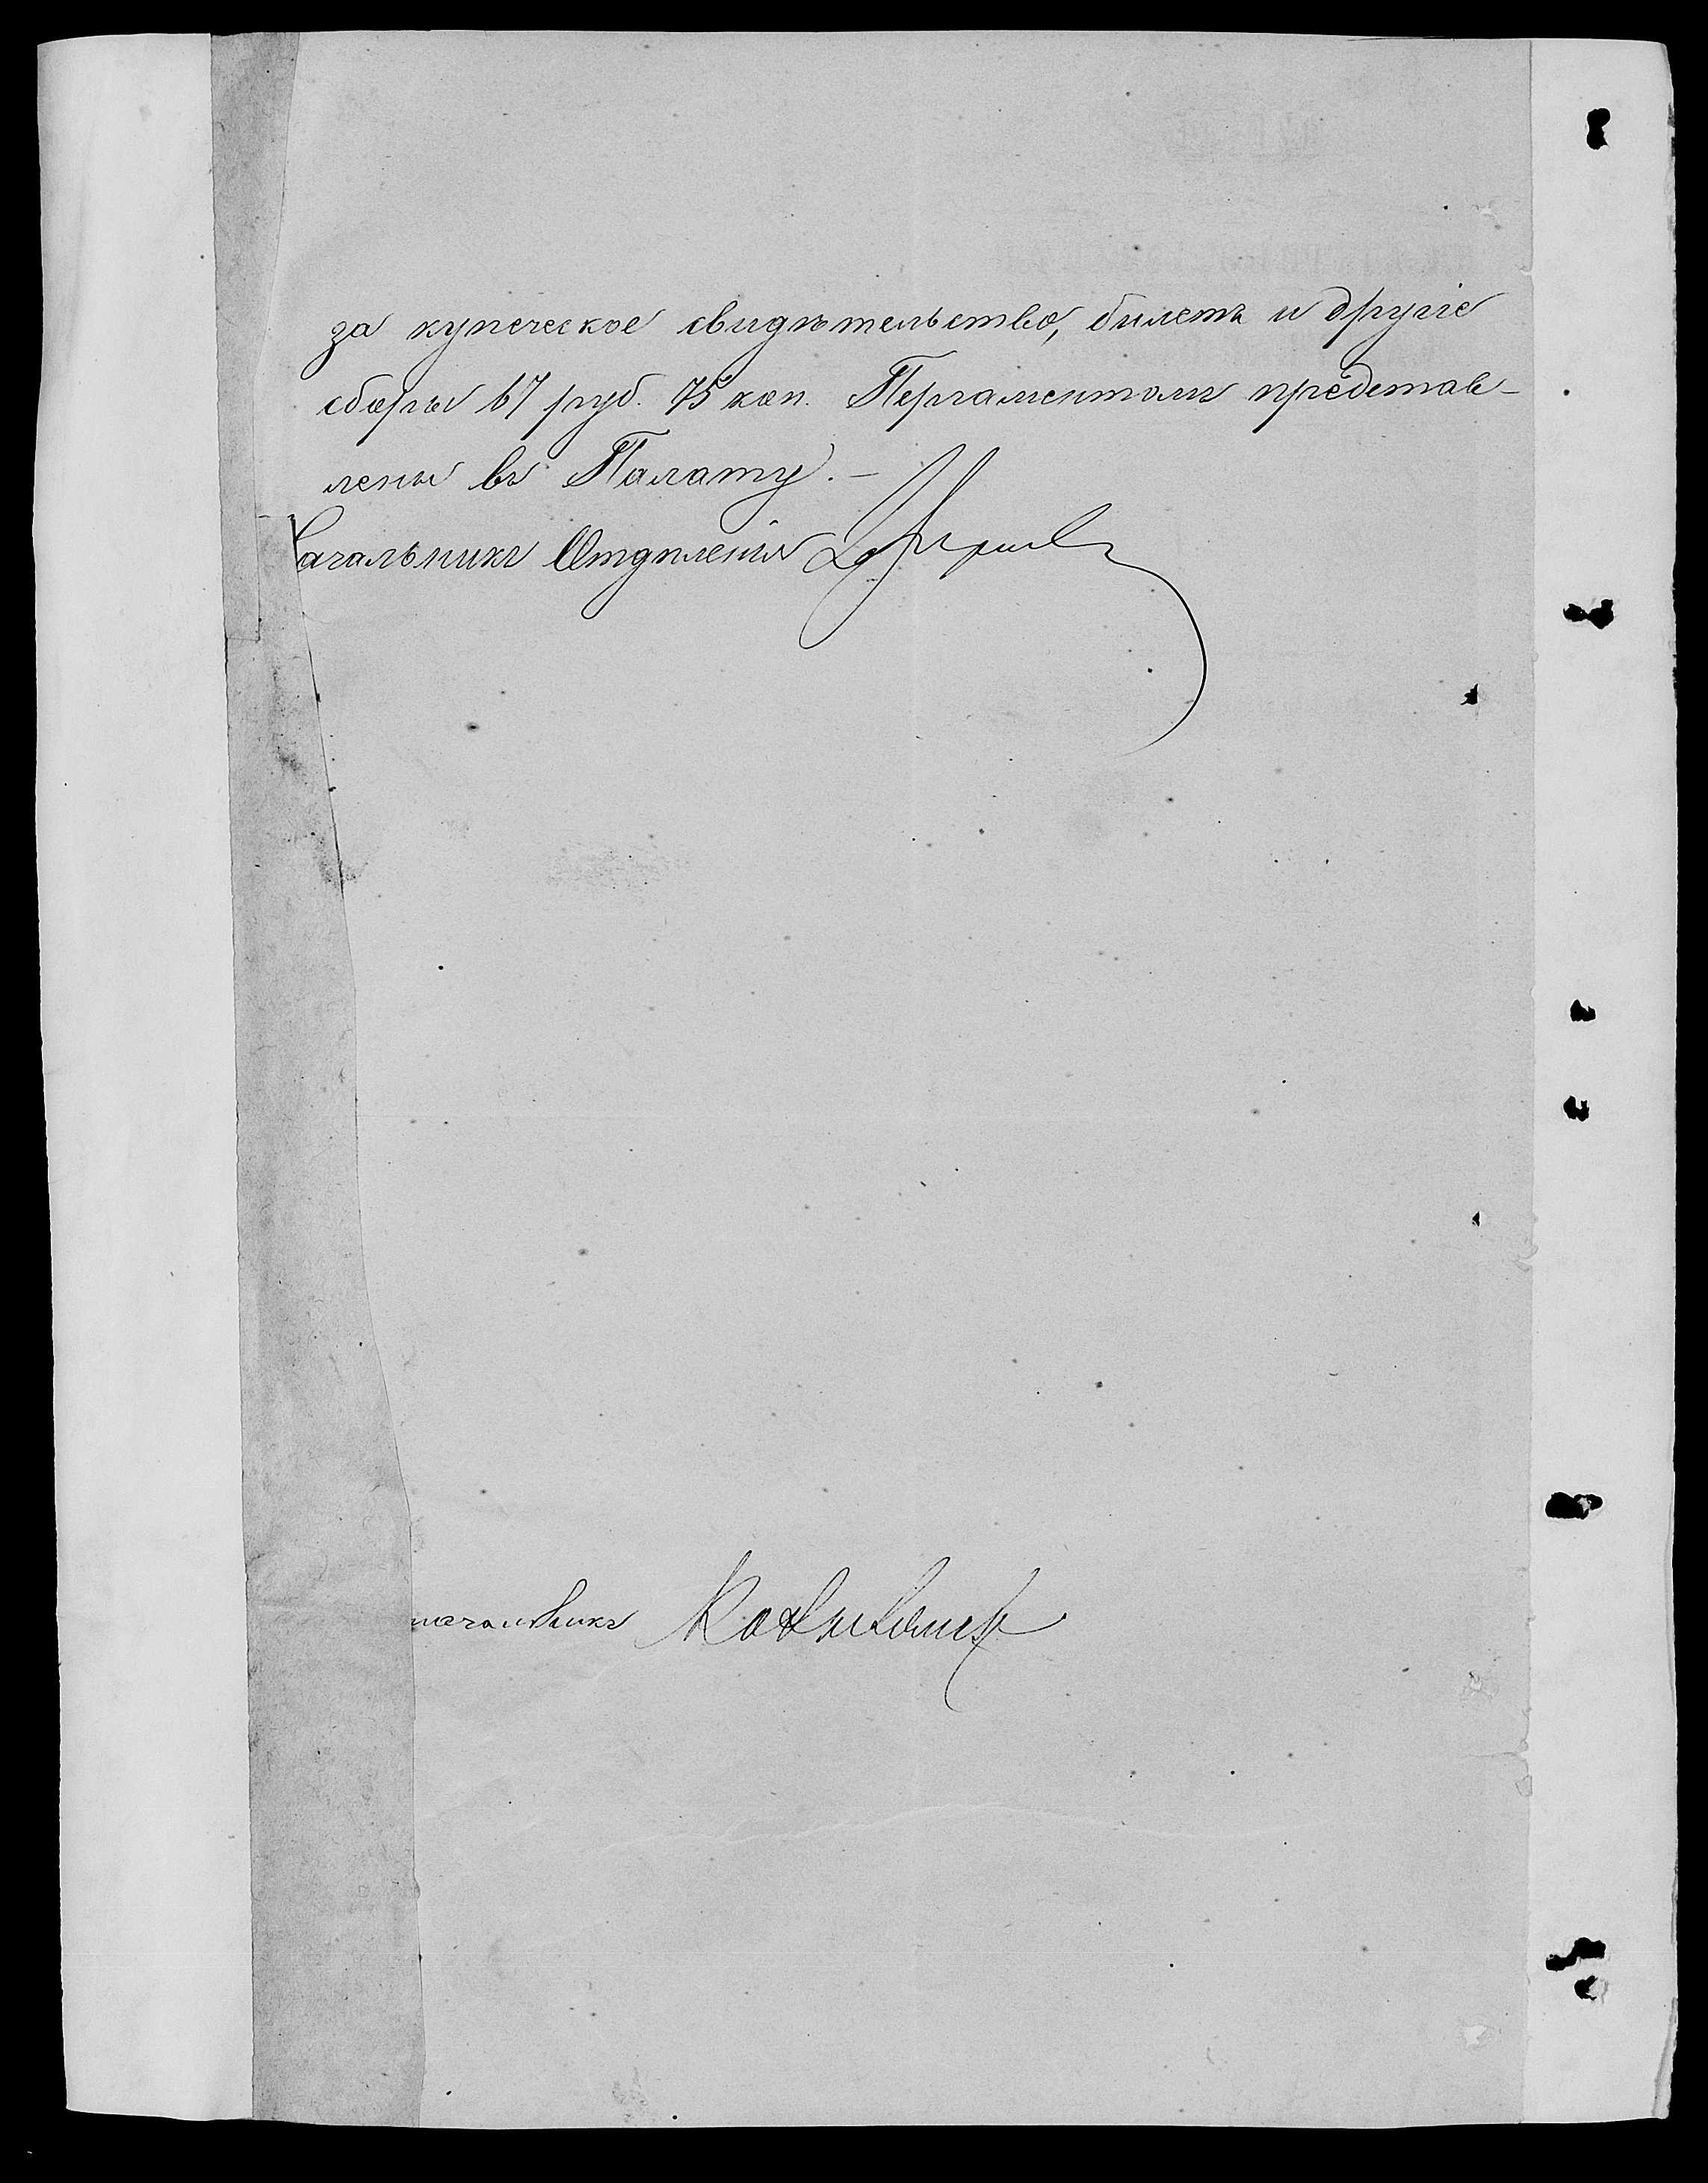 за купеческое свидѣтельство, билетъ и другіе
сборы 67 руб. 75 коп. Пергаментомъ представ-
лены въ Палату. –
Начальникъ Отдѣленія
начальникъ